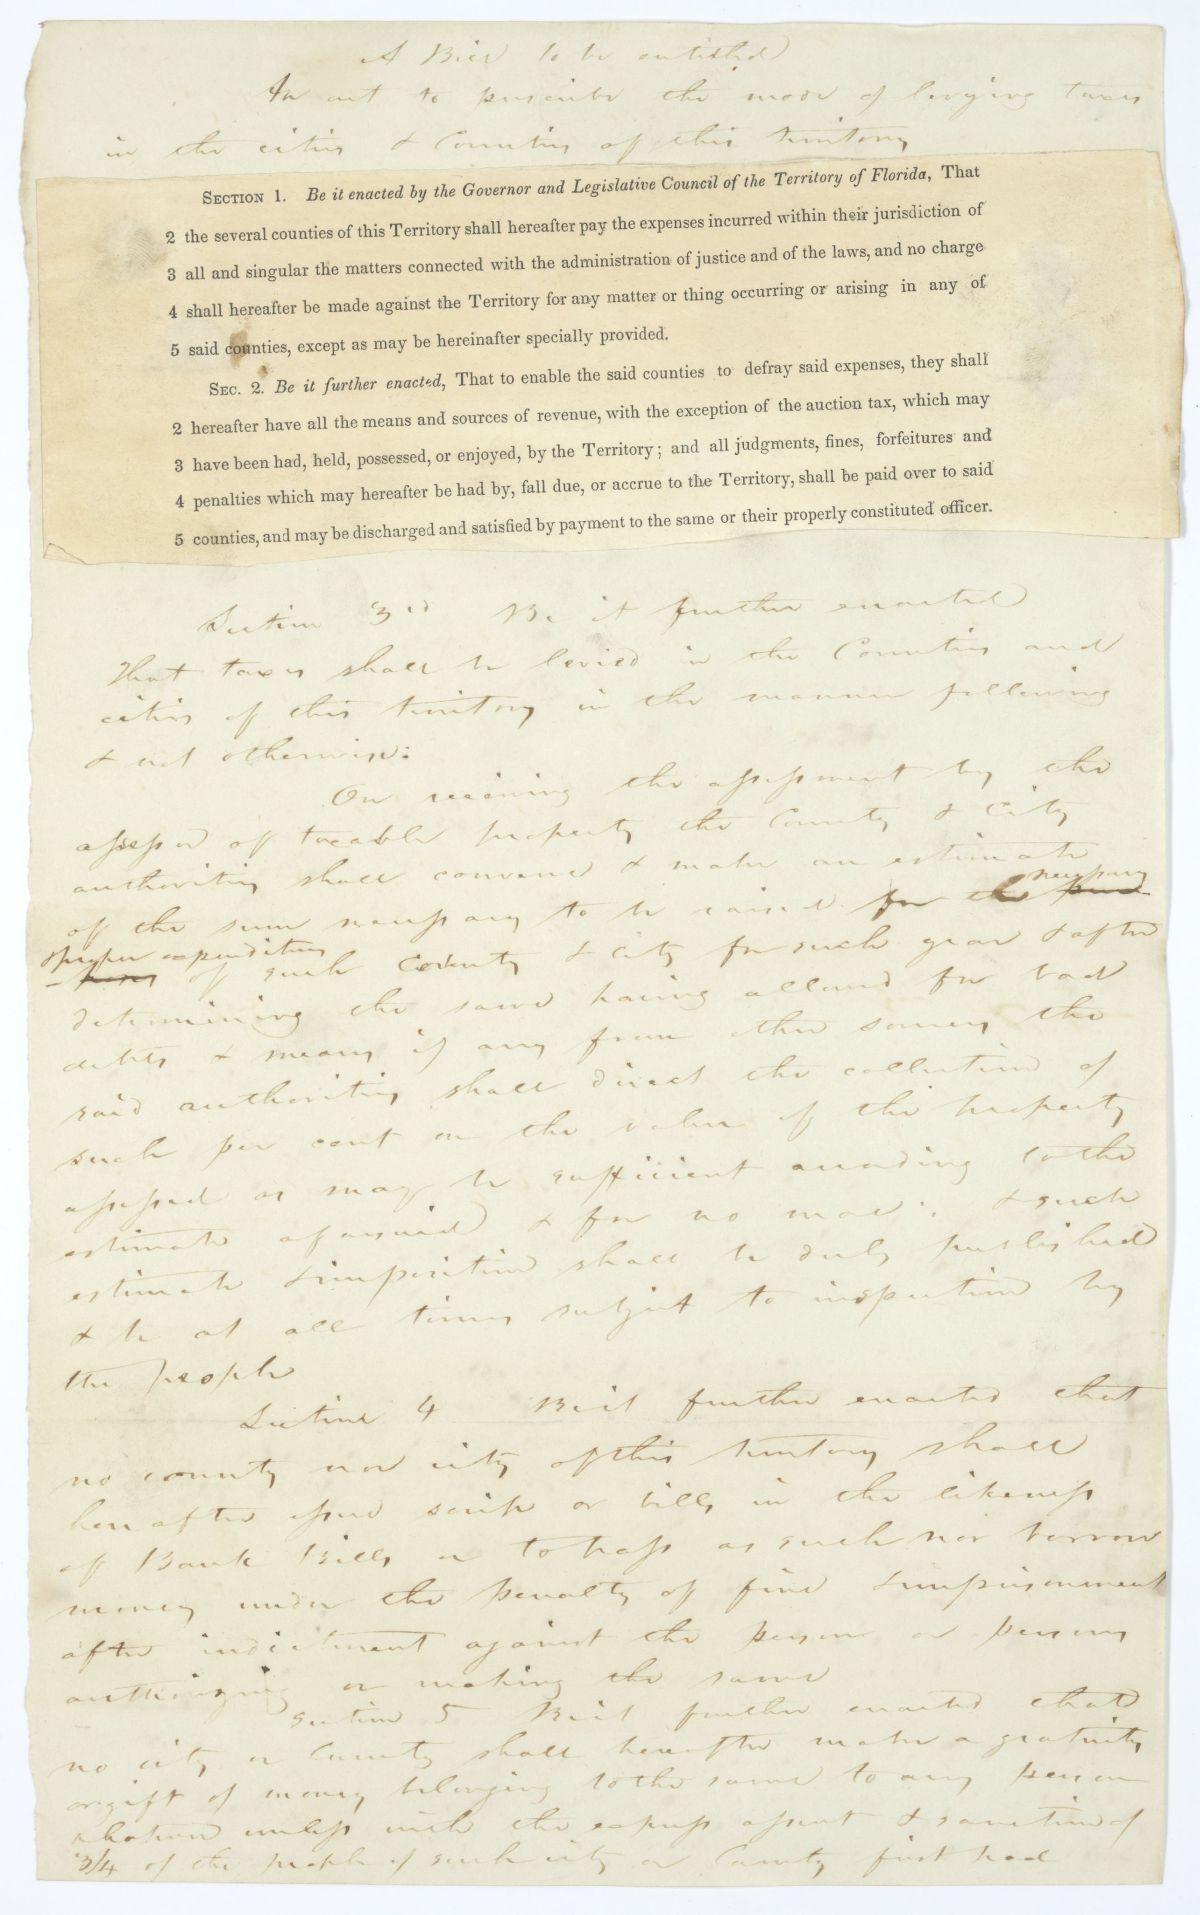 A Bill to be entitled
An act to prescribe the mode of levying taxes
in the cities & Counties of this territory
Section 1. Be it enacted by the Governor and Legislative Council of the Territory of Florida, That
2 the several counties of this Territory shall hereafter pay the expenses incurred within their jurisdiction of
3 all and singular the matters connected with the administration of justice and of the laws, and no charge
4 shall hereafter be made against the Territory for any matter or thing occurring or arising in any of
5 said counties, except as may be hereinafter specially provided.
Sec. 2. Be it further enacted, That to enable the said counties to defray said expenses, they shall
2 hereafter have all the means and sources of revenue, with the exception of the auction tax, which may
3 have been had, held, possessed, or enjoyed, by the Territory; and all judgments, fines, forfeitures and
4 penalties which may hereafter be had by, fall due, or accrue to the Territory, shall be paid over to said
5 counties, and may be discharged and satisfied by payment to the same or their properly constituted officer.
Section 3rd Be it further enacted
That taxes shall be levied in the Counties and
cities of this territory in the manner following
& not otherwise:
On receiving the assessment by the
assessor of taxable property the County & City
authorities shall convene & make an estimate
necessary
of the sum necessary to be raised for the
& proper expenditures
of such County & City for such year & after
determining the same having allowed for bad
debts & means if any from other sources the
said authorities shall direct the collection of
such per cent on the value of the property
assessed as may be sufficient according to the
estimate aforesaid & for no more: & such
estimate & imposition shall be duly published
& be at all times subject to inspection by
the people
Section 4 Be it further enacted that
no county nor city of this territory shall
hereafter issue scrip or bills in the likeness
of Bank Bills or to pass as such nor borrow
money under the penalty of fine & imprisonment
after indictment against the person or persons
authorizing or making the same
Section 5 Be it further enacted that
no city or County shall hereafter make a gratuity
or gift of money belonging to the same to any person
whatever unless with the express assent & sanction of
3/4 of the people of such city or County first had